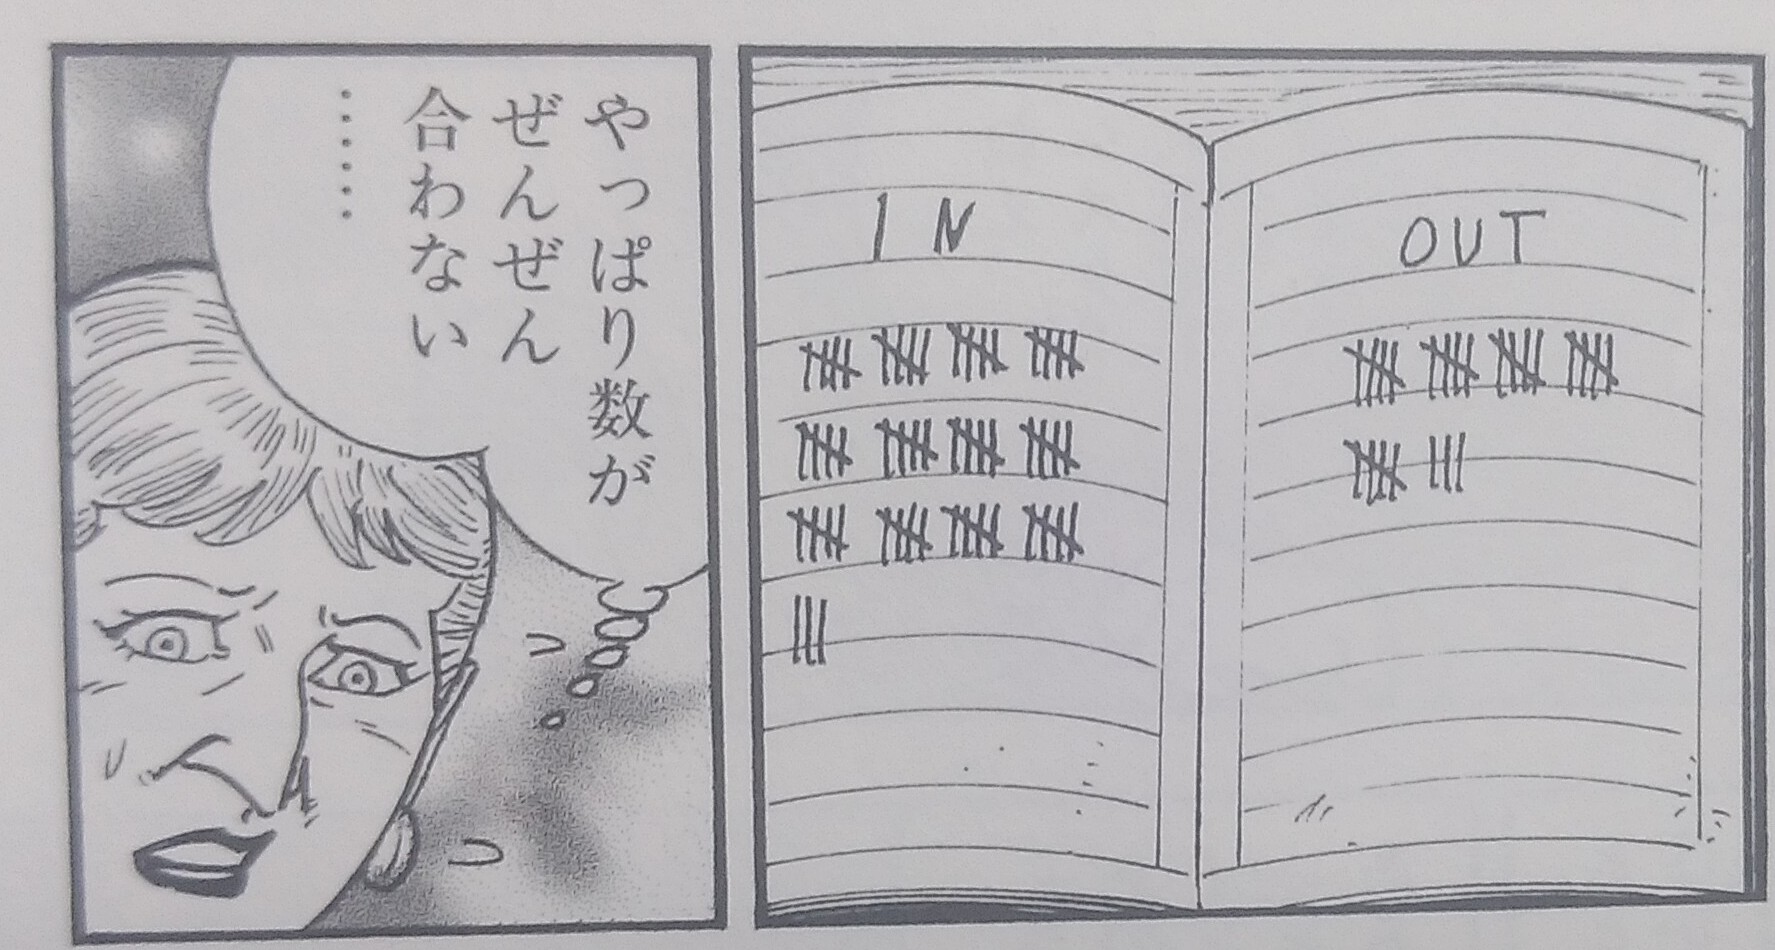 IN
OUT
やっぱり数が
ぜんぜん
合わない
……